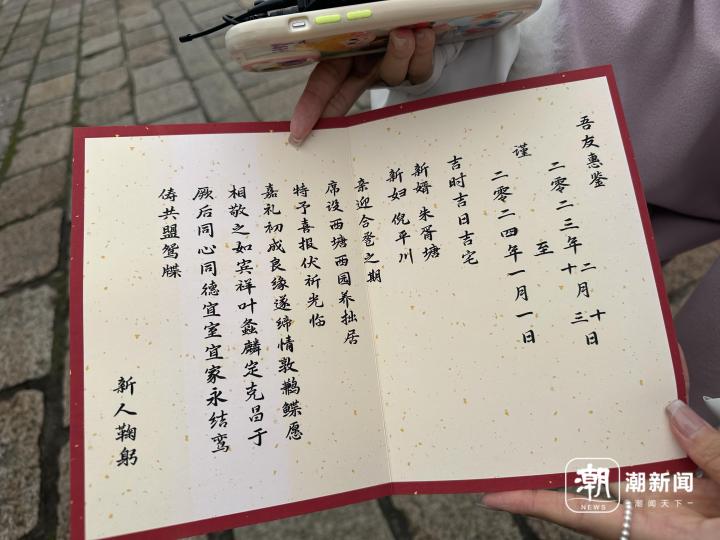 吾友惠鉴
二零二三年十二月三十日
至
谨
二零二四年一月一日
吉时吉日吉宅
新婿 朱胥塘
新妇 倪平川
亲迎合卺之期
席设西塘西园养拙居
特予喜报伏祈光临
嘉礼初成良缘遂缔情敦鹣鲽愿
相敬之如宾祥叶螽麟定克昌于
厥后同心同德宜室宜家永结鸾
俦共盟鸳牒
新人鞠躬
潮
NEWS
潮新闻
潮闻天下